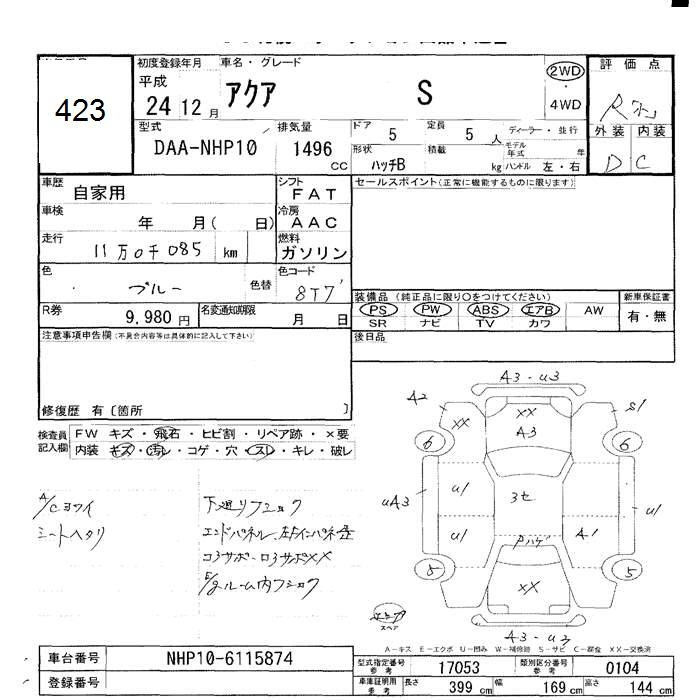 423
初度登録年月 車名・グレード
平成
24 12 月 アクア S
2WD
4WD
評価点
R
外装 内装
D C
型式 排気量 ドア 定員 ディーラー・並行
DAA-NHP10 1496 CC 5 5 人
形状 積載 モデル年式 年
ハッチB kg ハンドル 左・右
車歴 自家用 シフト FAT
セールスポイント(正常に機能するものに限ります)
車検 年 月( 日) 冷房 AAC
走行 11万0千085 km 燃料 ガソリン
色 ブルー 色替 色コード 8T7
装備品 (純正品に限り○をつけてください) 新車保証書
PS PW ABS エアB AW 有・無
SR ナビ TV カワ
R券 9,980 円 名変通知期限 月 日
注意事項申告欄(不具合内容等は具体的に記入して下さい)
後日品
修復歴 有〔箇所 〕
検査員記入欄
FW キズ・飛石・ヒビ割・リペア跡・×要
内装 キズ・汚レ・コゲ・穴・スレ・キレ・破レ
A/Cヨワイ
シートヘタリ
下廻リフショク
コ3サポーロ3サポXX
E/gルーム内フショク
A3-U3
A2 XX XX S1
A3
6 6
UA3 U1 3セ U1
U1 PハゲA1
5 5
XX
スペア
A3-U3
A-キズ E-エクボ U-凹み W-補修跡 S-サビ C-腐食 XX-交換済
車台番号 NHP10-6115874
登録番号
型式指定番号 参考 17053 類別区分番号 参考 0104
車庫証明用 参考 長さ 399 cm 幅 169 cm 高さ 144 cm